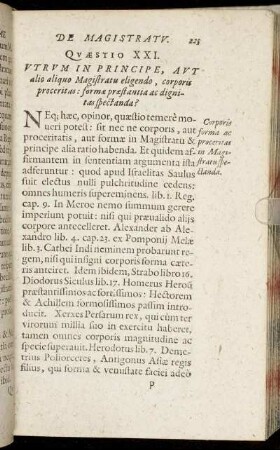 DE MAGISTRATV. 225
QVÆSTIO XXI.
VTRVM IN PRINCIPE, AVT
alio aliquo Magistratu eligendo, corporis
proceritas: formæ præstantia ac digni-
tas spectanda?
NEq; hæc, opinor, quæstio temerè mo-
ueri potest: sit nec ne corporis, aut
proceritatis, aut formæ in Magistratu &
principe alia ratio habenda. Et quidem af-
firmantem in sententiam argumenta ista
adferuntur: quod apud Israelitas Saulus
fuit electus nulli pulchritudine cedens:
omnes humeris supereminens. lib. 1. Reg.
cap. 9. In Meroe nemo summum gerere
imperium potuit: nisi qui præualido alijs
corpore antecelleret. Alexander ab Ale-
xandro lib. 4. cap. 23. ex Pomponij Melæ
lib. 3. Cathei Indi neminem probarunt re-
gem, nisi qui insigni corporis forma cæte-
ris anteiret. Idem ibidem, Strabo libro 16.
Diodorus Siculus lib. 17. Homerus Heroas
præstantissimos ac fortissimos: Hectorem
& Achillem formosissimos passim intro-
ducit. Xerxes Persarum rex, qui cùm ter
virorum millia suo in exercitu haberet,
tamen omnes corporis magnitudine ac
specie superauit. Herodotus lib. 7. Deme-
trius Poliorcetes, Antigonus Asiæ regis
filius, qui forma & venustate faciei adeò
P
Corporis
forma ac
proceritas
in Magi-
stratu spe-
ctanda.